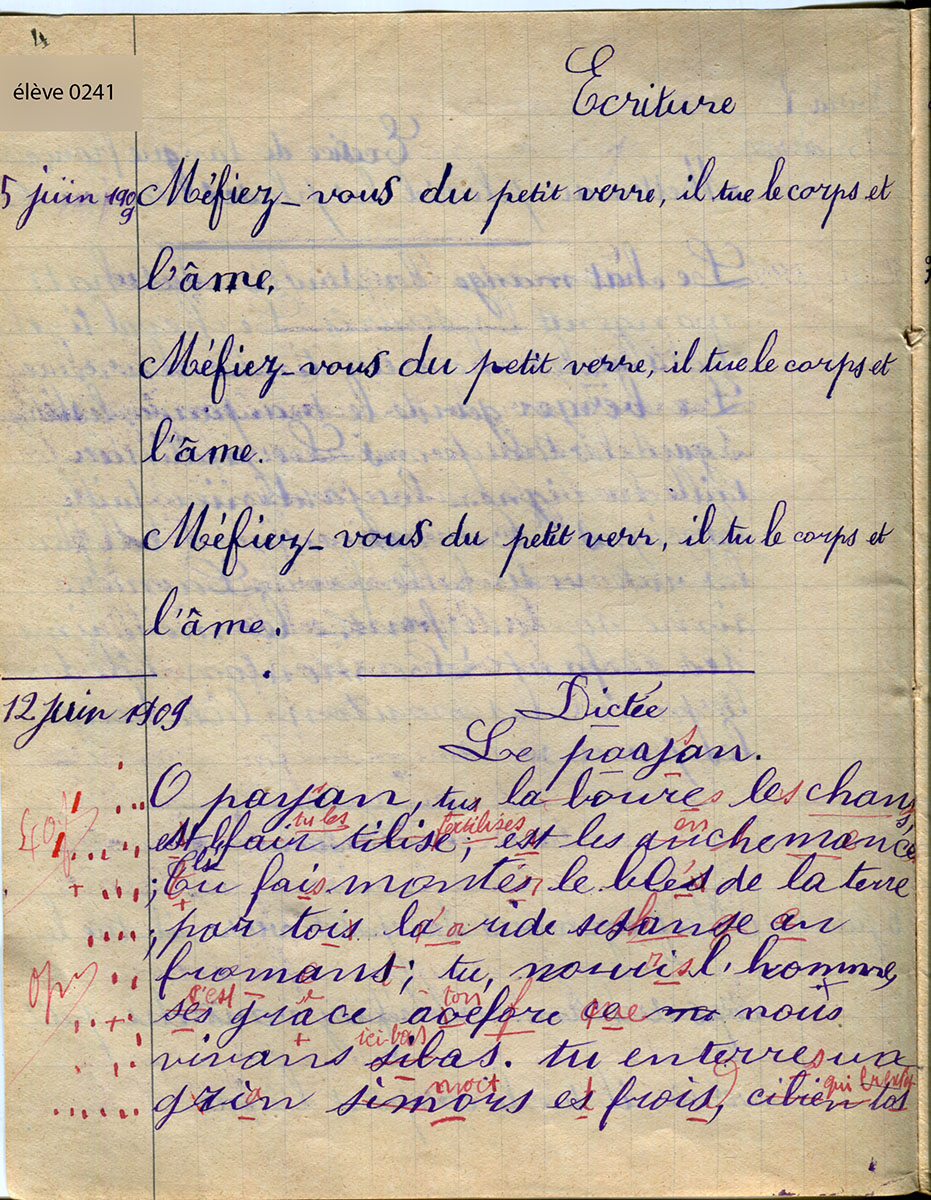 4
élève 0241
Ecriture
5 juin 1909 Méfiez-vous du petit verre, il tue le corps et
l'âme.
Méfiez-vous du petit verre, il tue le corps et
l'âme.
Méfiez-vous du petit verr, il tu le corps et
l'âme.
12 juin 1909
Dictée
Le paysan.
O paysan, tu la boures les chans
tu les fertilises en
est fair tilise, est les anchemance
Tu fais monter le blés de la terre
; par tois la ride se sanse an
fromant; tu, nourris l'homme,
c'est ton
ses grâce aoefore que nous
ici-bas
vivans sibas. tu enterres un
mort qui
grin simors es frois,